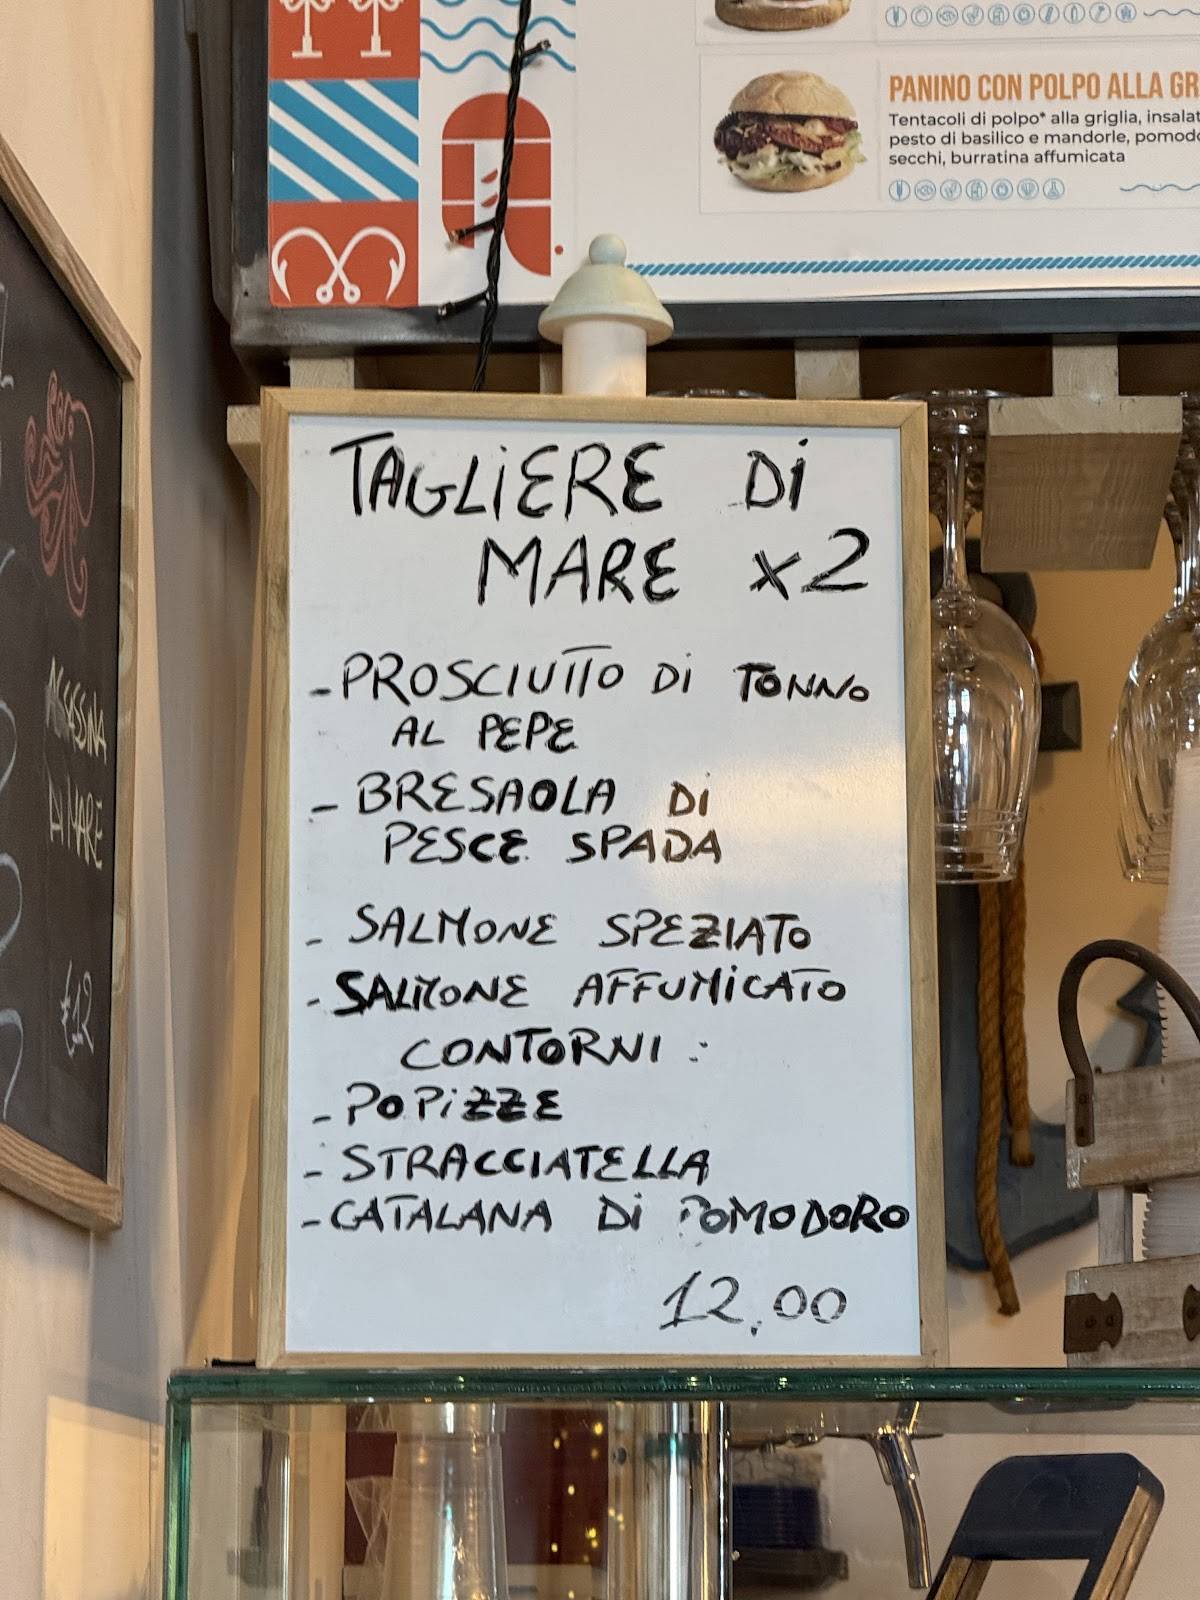 PANINO CON POLPO ALLA GR
Tentacoli di polpo* alla griglia, insalat
pesto di basilico e mandorle, pomodo
secchi, burratina affumicata
TAGLIERE DI
MARE x2
- PROSCIUTTO DI TONNO
AL PEPE
- BRESAOLA DI
PESCE SPADA
- SALMONE SPEZIATO
- SALMONE AFFUMICATO
CONTORNI:
- POPIZZE
- STRACCIATELLA
- CATALANA DI POMODORO
12,00
ASSASSINA
DI MARE
€12